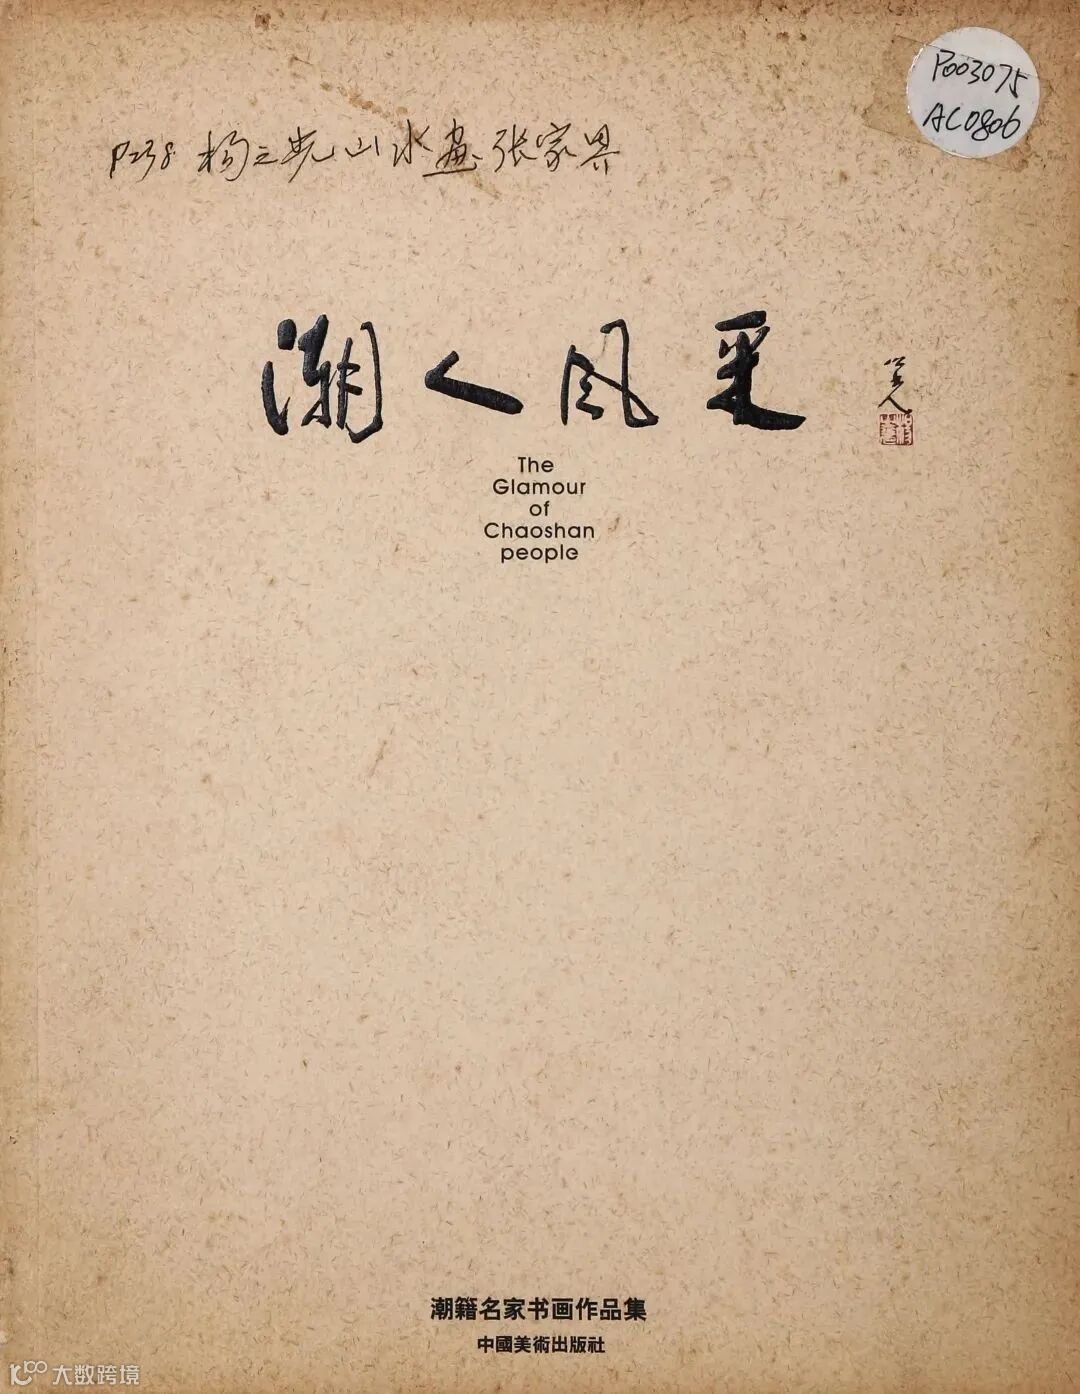 P003075
AC0806
P238 杨之光山水画张家界
潮人风采
The
Glamour
of
Chaoshan
people
潮籍名家书画作品集
中國美術出版社
大数跨境